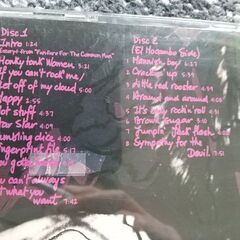 Disc 1
Intro 1:24
Excerpt from "Fanfare For The Common Man"
Honky tonk Women 3:21
If you can't rock me/
Get off of my cloud 5:00
Happy 2:55
Hot stuff 4:37
Star Star 4:09
Tumbling dice 4:00
Fingerprint file 5:17
You gotta move
You can't always
get what you
want 7:42
Disc 2
(El Mocambo Side)
1. Mannish boy
2. Crackin' up
3. Little red rooster 4:39
4. Around and around
5. It's only rock'n roll
6. Brown Sugar 3:11
7. Jumpin' Jack flash
8. Sympathy for the
Devil